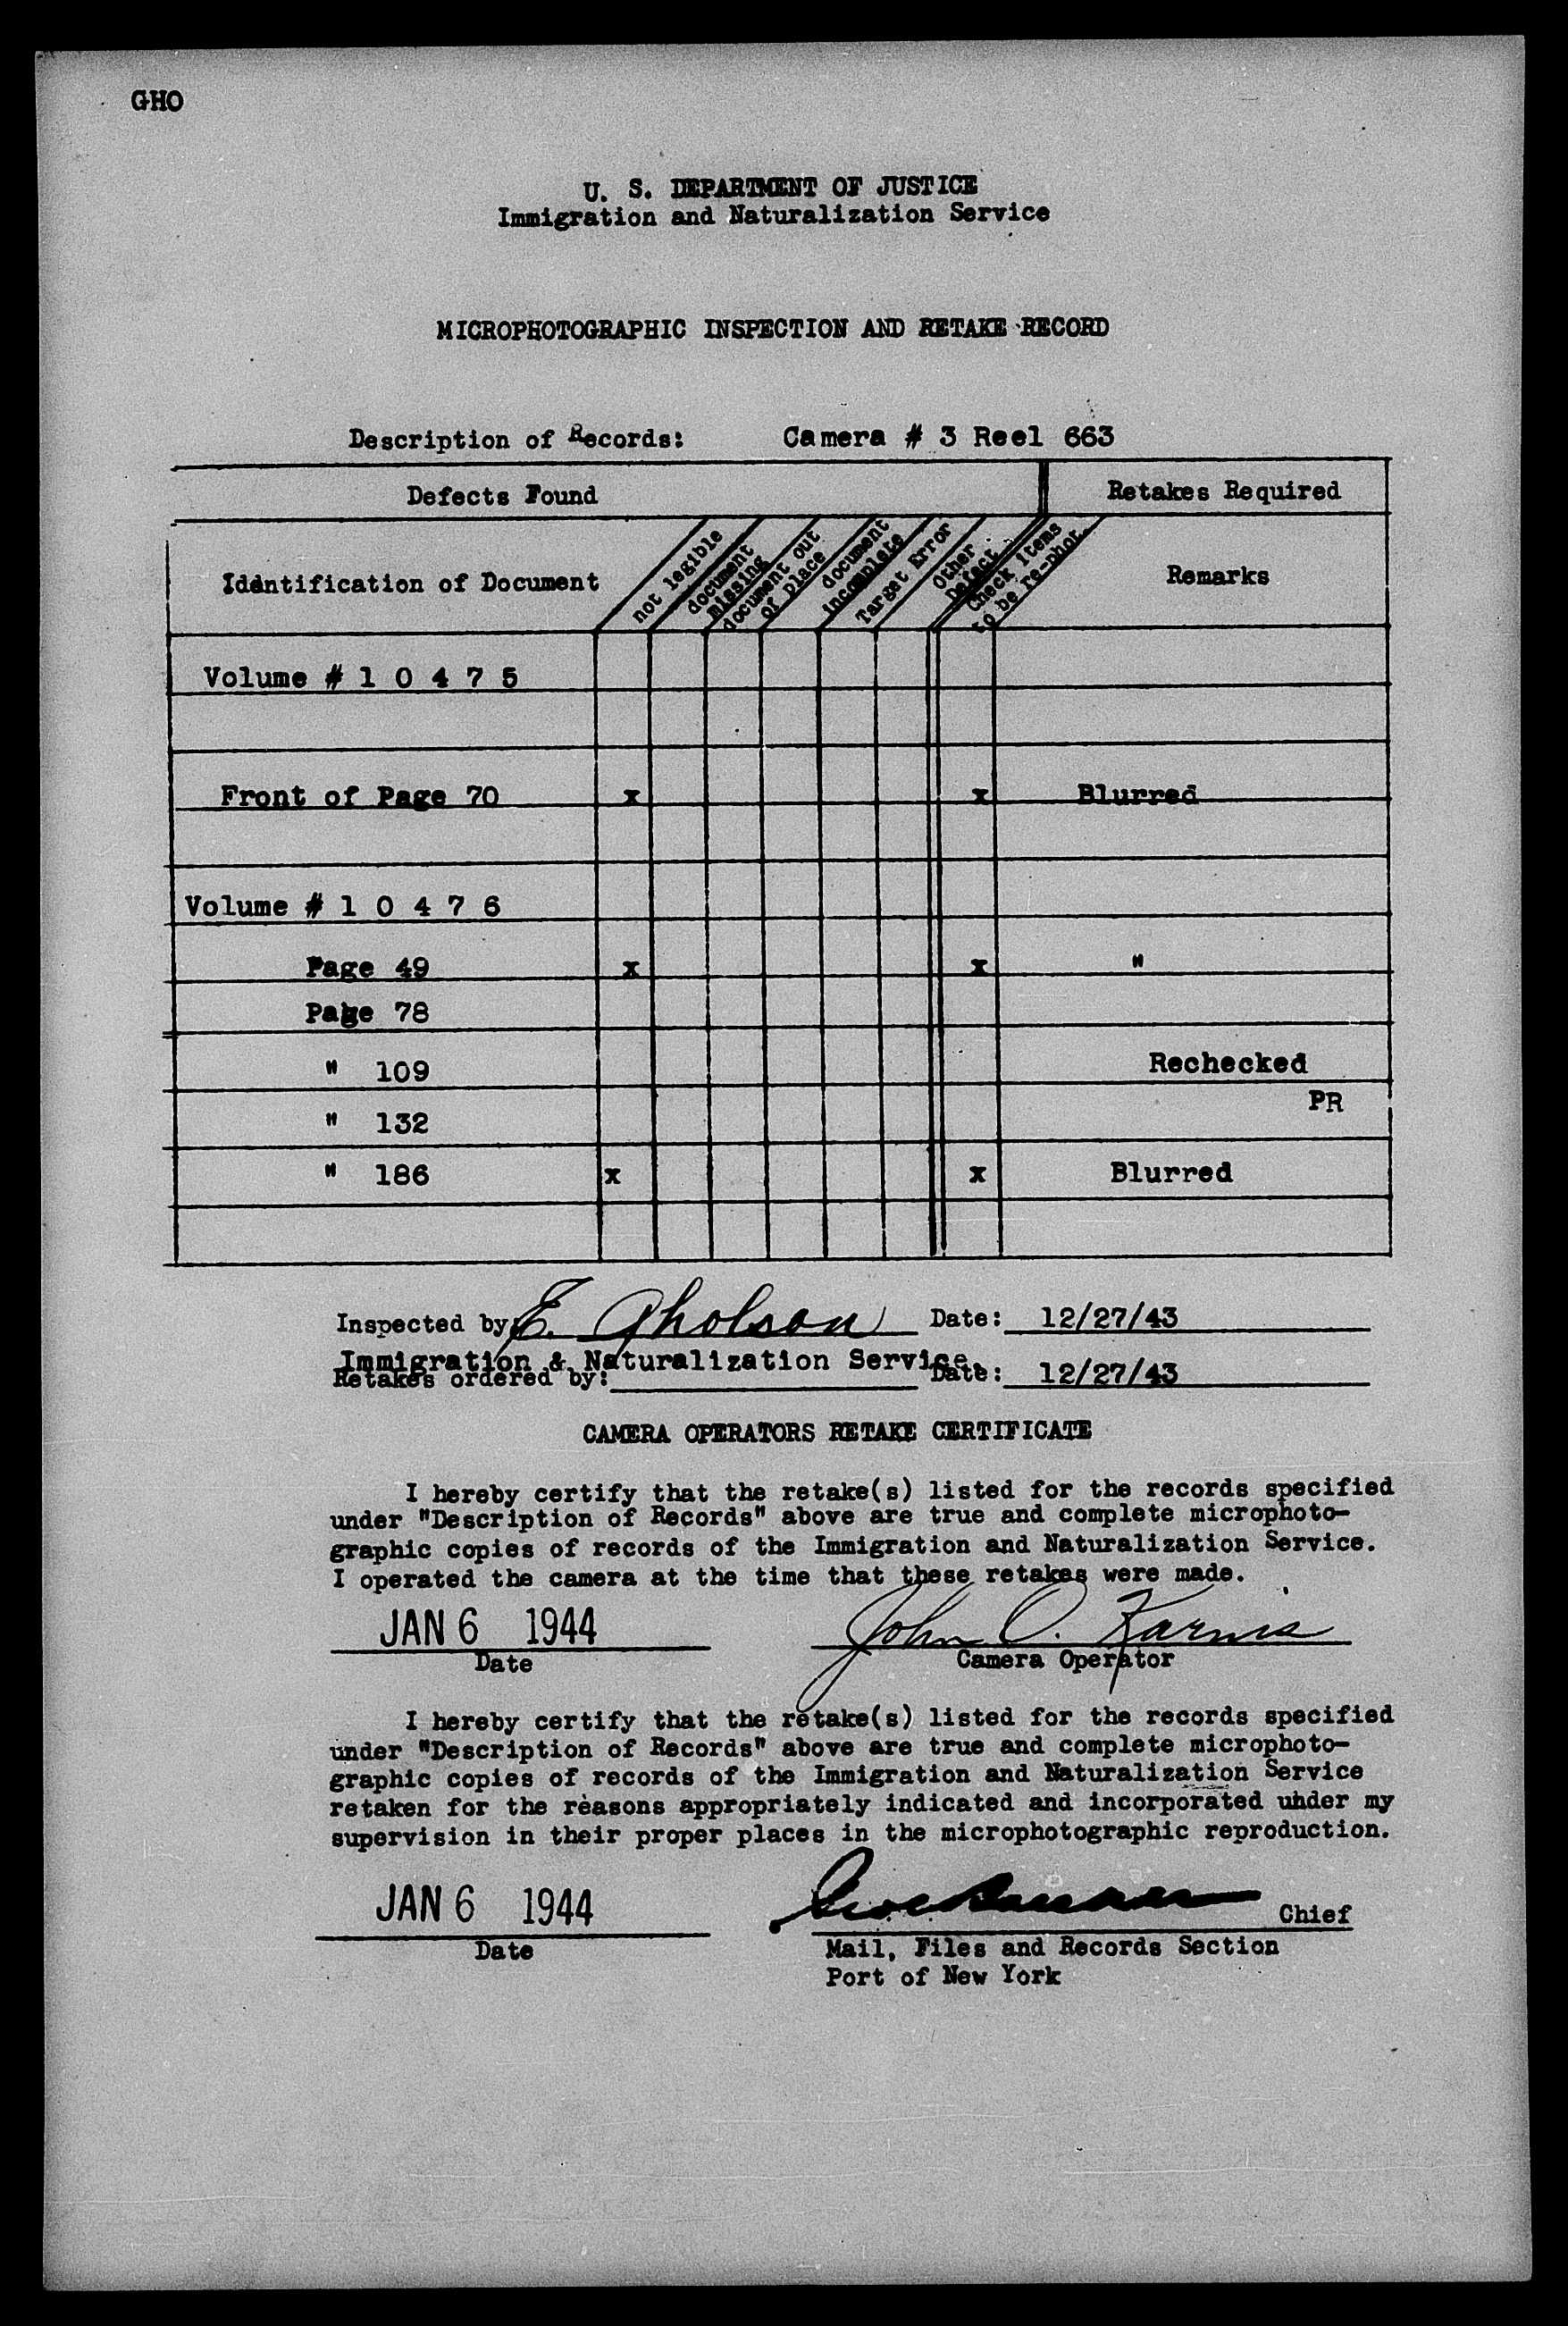 GHO
U. S. DEPARTMENT OF JUSTICE
Immigration and Naturalization Service
MICROPHOTOGRAPHIC INSPECTION AND RETAKE RECORD
Description of Records: Camera # 3 Reel 663
Defects Found Retakes Required
Identification of Document
not legible
document missing
document out of place
document incomplete
Target Error
Other Defect
Check items to be re-phot.
Remarks
Volume # 1 0 4 7 5
Front of Page 70 x x Blurred
Volume # 1 0 4 7 6
Page 49 x x "
Page 78
" 109 Rechecked
" 132 PR
" 186 x x Blurred
Inspected by: E. Gholson Date: 12/27/43
Immigration & Naturalization Service.
Retakes ordered by: Date: 12/27/43
CAMERA OPERATORS RETAKE CERTIFICATE
I hereby certify that the retake(s) listed for the records specified
under "Description of Records" above are true and complete microphoto-
graphic copies of records of the Immigration and Naturalization Service.
I operated the camera at the time that these retakes were made.
JAN 6 1944 John O. Karnis
Date Camera Operator
I hereby certify that the retake(s) listed for the records specified
under "Description of Records" above are true and complete microphoto-
graphic copies of records of the Immigration and Naturalization Service
retaken for the reasons appropriately indicated and incorporated under my
supervision in their proper places in the microphotographic reproduction.
JAN 6 1944 Chief
Date Mail, Files and Records Section
Port of New York